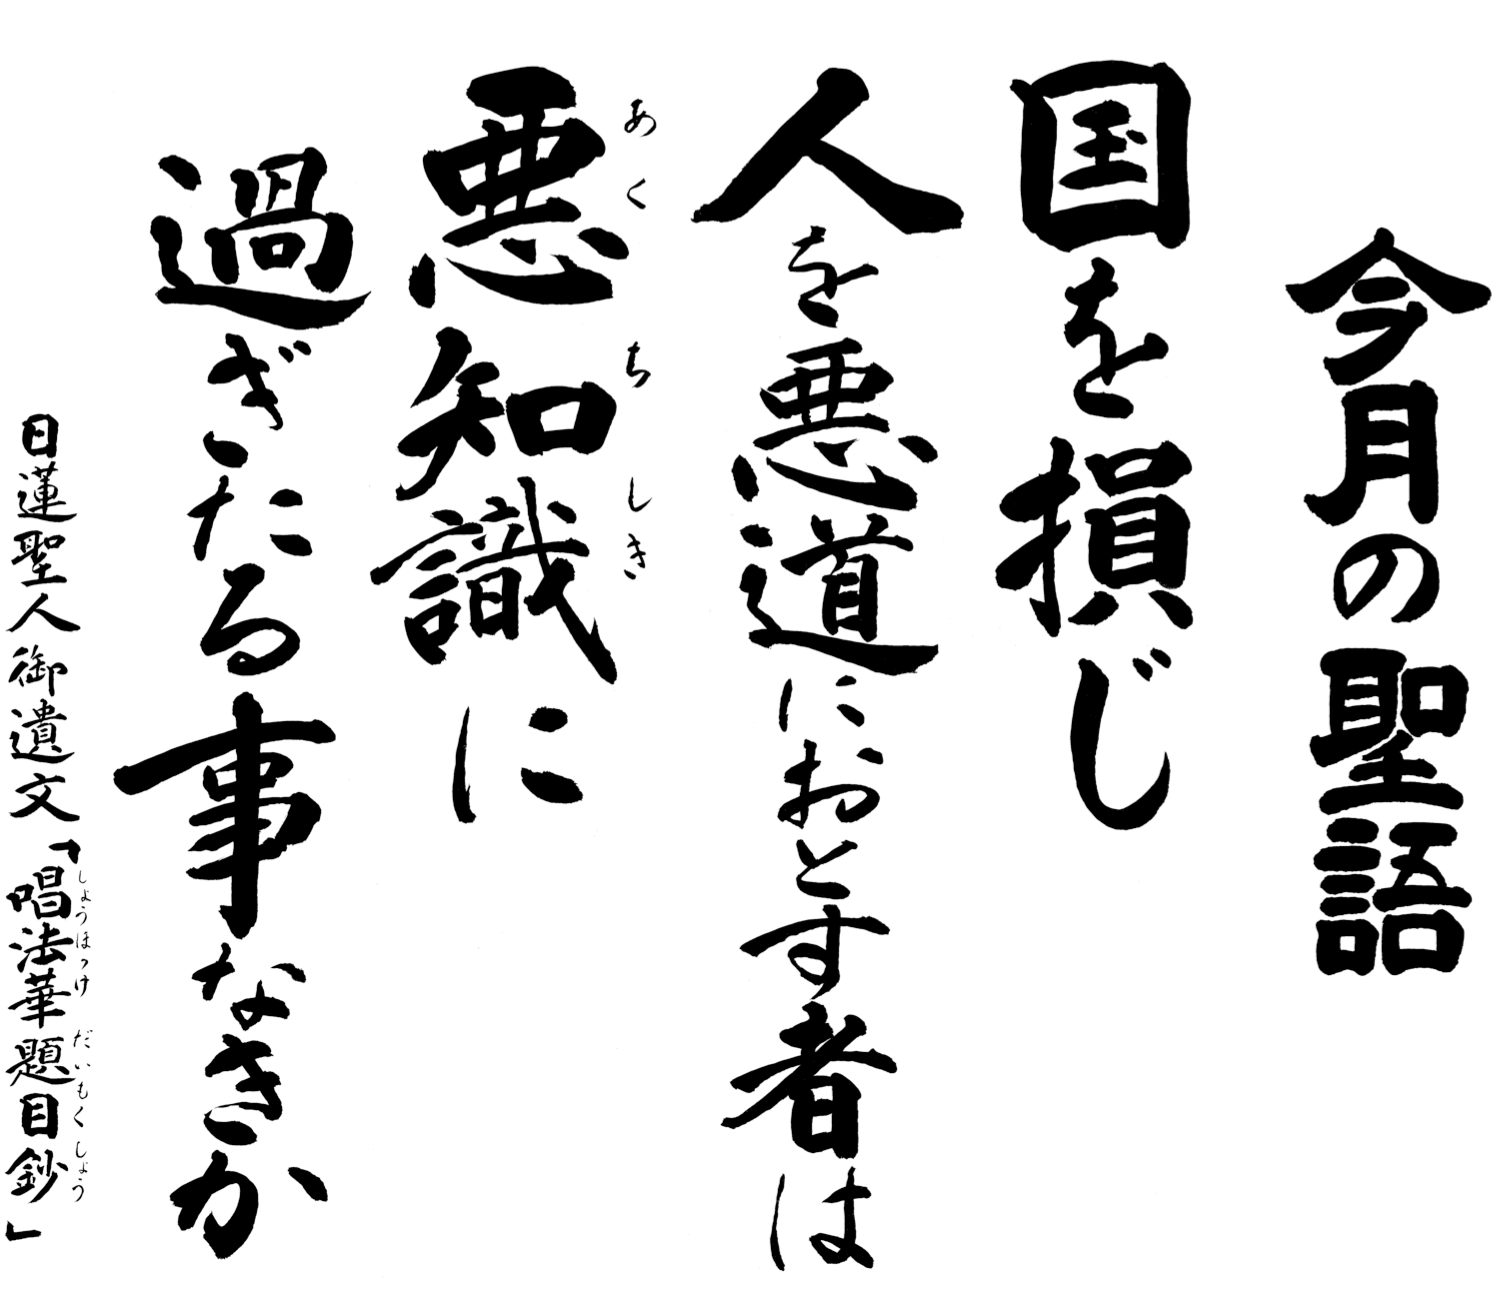 今月の聖語
国を損じ
人を悪道におとす者は
悪知識に
あくちしき
過ぎたる事なきか
日蓮聖人御遺文「唱法華題目鈔」
しょうほっけだいもくしょう